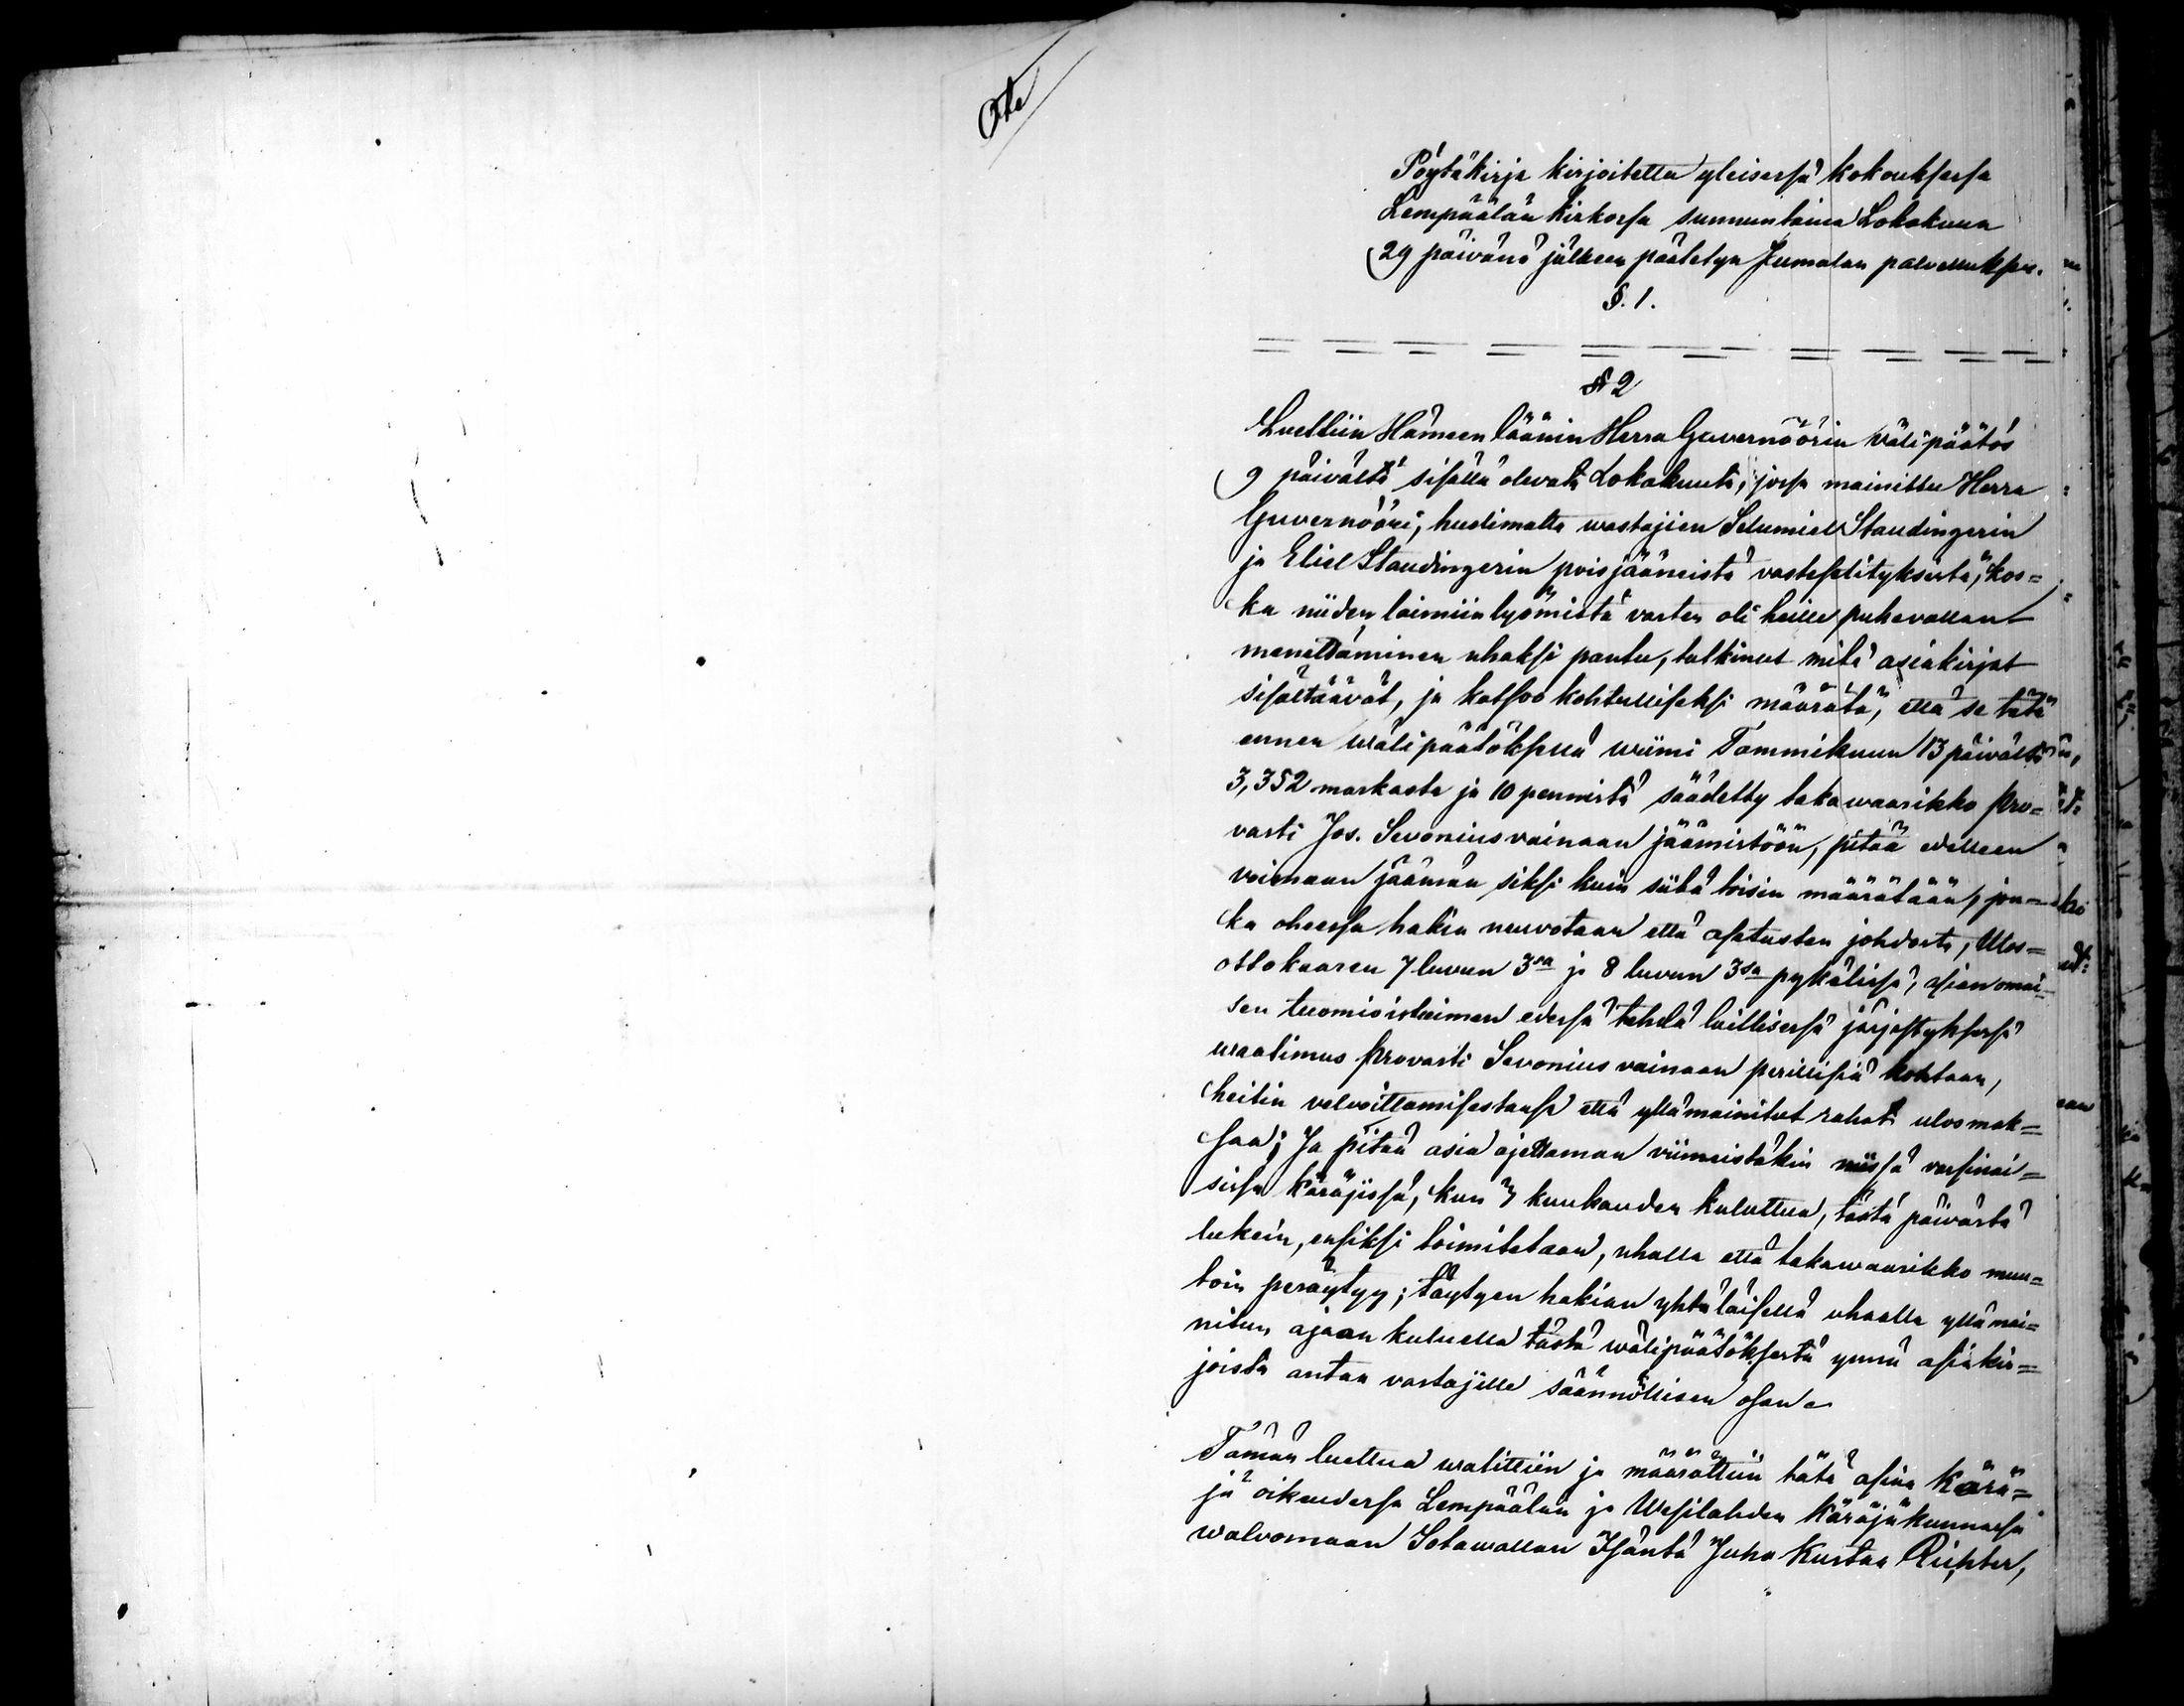 Ote
Pöytäkirja kirjoitettu yleisessä kokouksessa
Lempäälän kirkossa sunnuntaina Lokakuun
29 päivänä jälkeen päätetyn Jumalan palveluksen.
§. 1.
§ 2
Luettiin Hämeen läänin Herra Guvernöörin välipäätös
9 päivältä sisällä olevata Lokakuuta, jossa mainittu Herra
Guvernööri, huolimatta wastajien Selumiel Staudingerin
ja Eliel Staudingerin poisjääneistä vastaselityksistä, kos=
ka niiden laimiin lyömistä varten oli heille puhevallan
menettäminen uhaksi pantu, tutkinut mitä asiakirjat
sisältäävät, ja katsoo kohtulliseksi määrätä, että se tätä
ennen wälipäätöksellä wiimi Tammikuun 13 päivältä
3,352 markasta ja 10 pennistä säädetty takawaarikko pro=
vasti Jos. Sevonius vainaan jäämistöön, pitää edelleen
voimaan jäämän siksi kuin siitä toisin määrätään, jon=
ka oheessa hakia neuvotaan että asetusten johdosta, Ulos=
ottokaaren 7 luvun 3sa ja 8 luvun 3sa pykälissä, asianomai=
sen tuomioistuimen edessä tehdä laillisessa järjestyksessä
waatimus provasti Sevonius vainaan perillisiä kohtaan,
heitin velvoittamisestansa että yllämainitut rahat ulosmak=
saa; Ja pitää asia ajettaman viimeistäkin niissä varsinai=
sissa käräjissä, kun 3 kuukauden kuluttua, tästä päivästä
lukein, ensiksi toimitetaan, uhalla että takawaarikko muu=
toin peräytyy; täytyen hakian yhtäläisellä uhalla yllämai=
nitun ajaan kuluella tästä wälipäätöksestä ynnä asiakir=
joista antaa vastajille säännöllisen osan.
Tämän luettua walittiin ja määrättiin tätä asiaa kärä=
jä oikeudessa Lempäälän ja Wesilahden käräjäkunnassa
walvomaan Sotawallan Isäntä Juho Kustaa Richter,